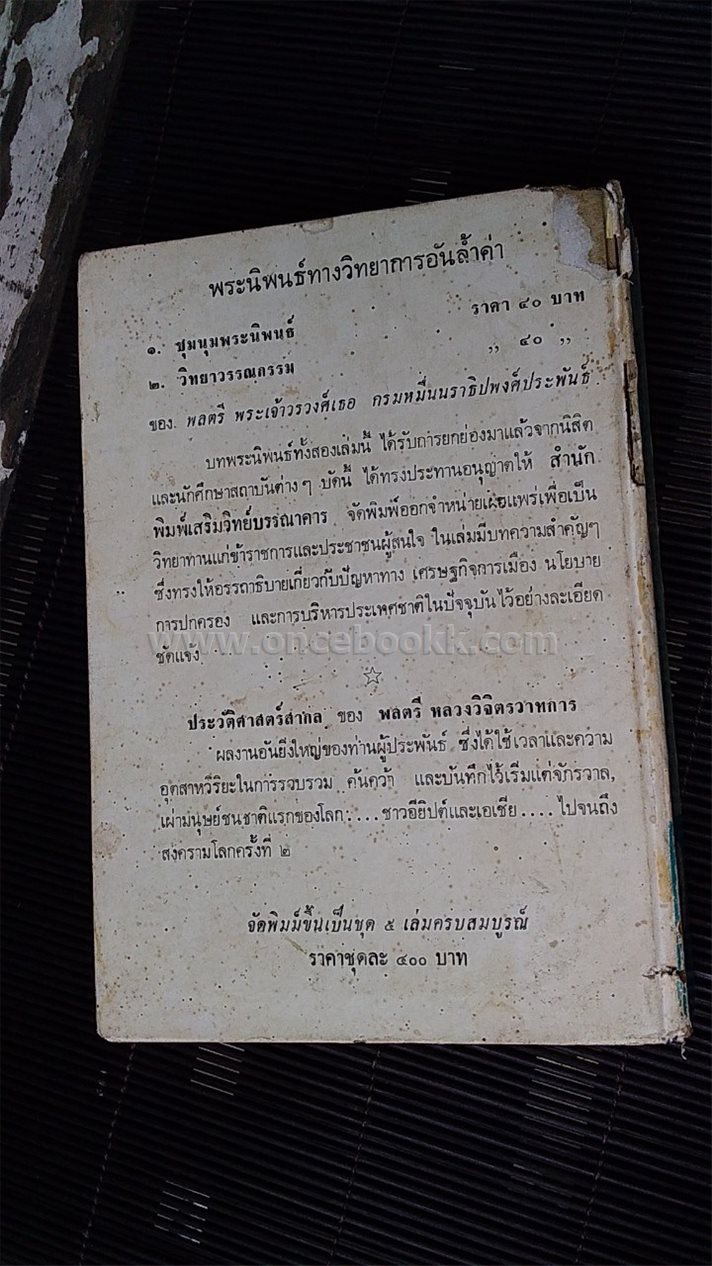 พระนิพนธ์ทางวิทยาการอันล้ำค่า
๑. ชุมนุมพระนิพนธ์ ราคา ๔๐ บาท
๒. วิทยาวรรณกรรม ,, ๔๐ ,,
ของ พลตรี พระเจ้าวรวงศ์เธอ กรมหมื่นนราธิปพงศ์ประพันธ์
บทพระนิพนธ์ทั้งสองเล่มนี้ ได้รับการยกย่องมาแล้วจากนิสิต
และนักศึกษาสถาบันต่างๆ บัดนี้ ได้ทรงประทานอนุญาตให้ สำนัก
พิมพ์เสริมวิทย์บรรณาคาร จัดพิมพ์ออกจำหน่ายเผยแพร่เพื่อเป็น
วิทยาทานแก่ข้าราชการและประชาชนผู้สนใจ ในเล่มมีบทความสำคัญๆ
ซึ่งทรงให้อรรถาธิบายเกี่ยวกับปัญหาทาง เศรษฐกิจการเมือง นโยบาย
การปกครอง และการบริหารประเทศชาติในปัจจุบันไว้อย่างละเอียด
ชัดแจ้ง
www.oncebookk.com
☆
ประวัติศาสตร์สากล ของ พลตรี หลวงวิจิตรวาทการ
ผลงานอันยิ่งใหญ่ของท่านผู้ประพันธ์ ซึ่งได้ใช้เวลาและความ
อุตสาหวิริยะในการรวบรวม ค้นคว้า และบันทึกไว้เริ่มแต่จักรวาล,
เผ่ามนุษย์ชนชาติแรกของโลก....ชาวอียิปต์และเอเซีย....ไปจนถึง
สงครามโลกครั้งที่ ๒
จัดพิมพ์ขึ้นเป็นชุด ๕ เล่มครบสมบูรณ์
ราคาชุดละ ๔๐๐ บาท